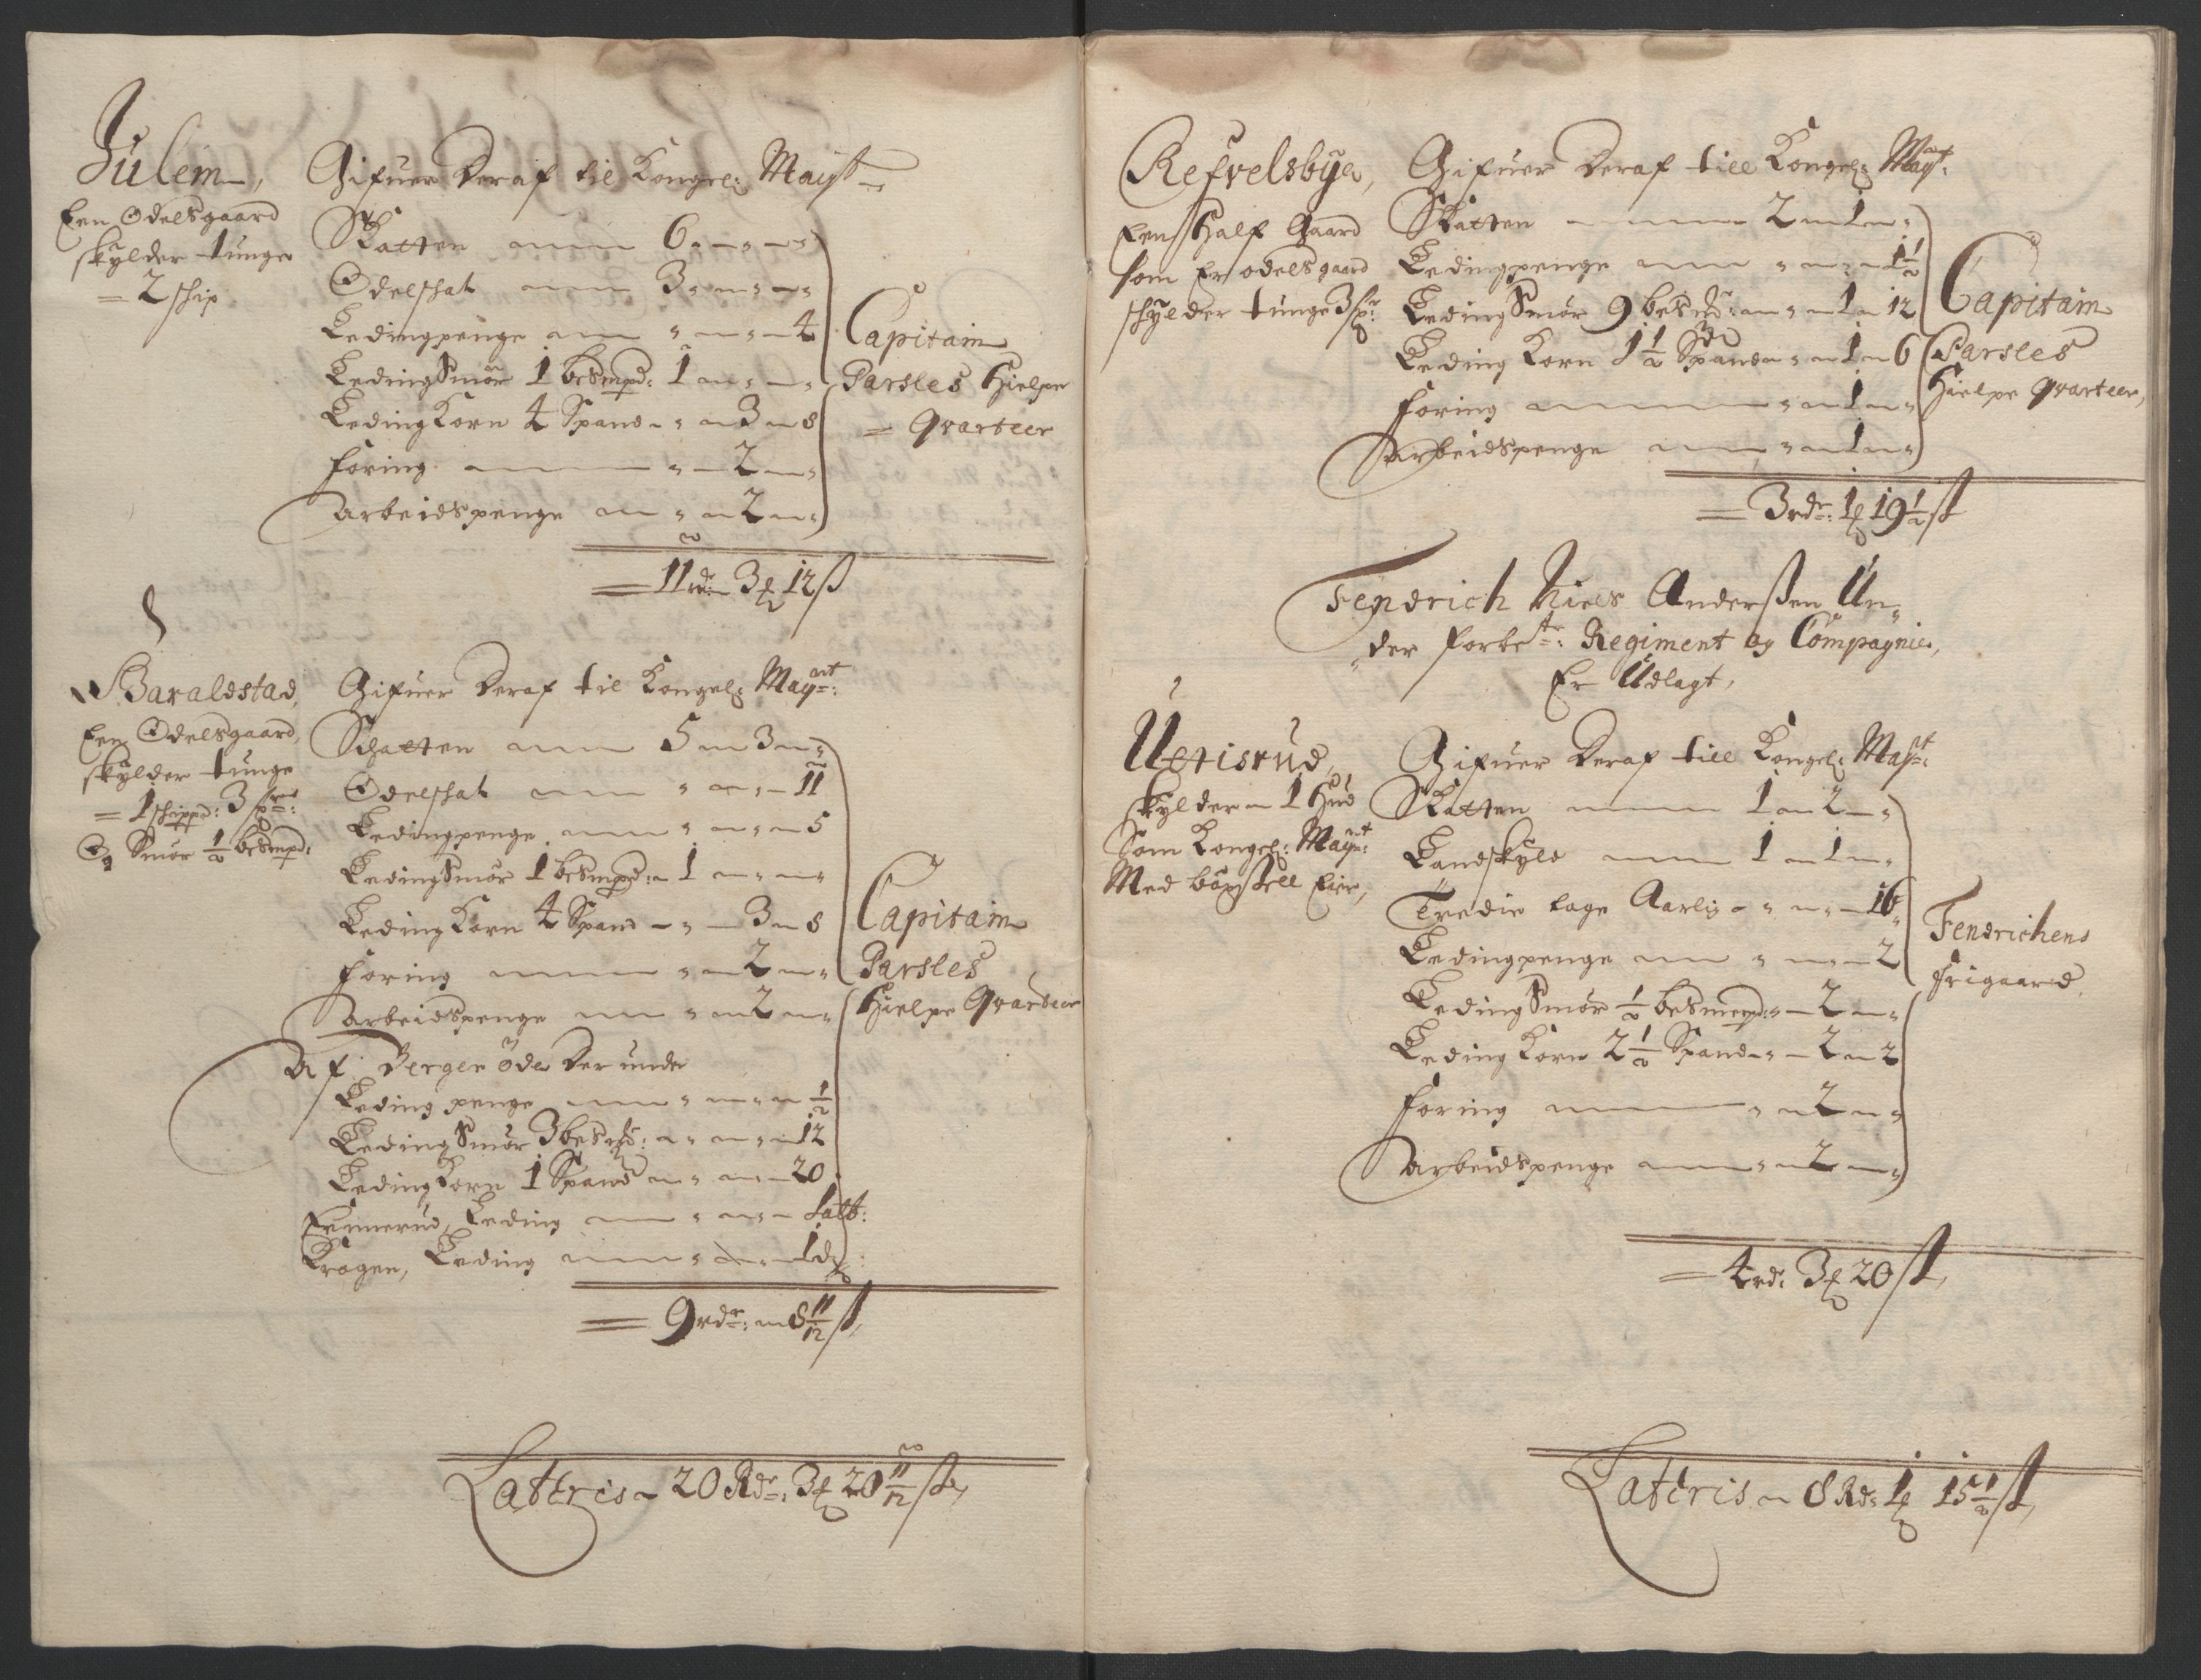 Julem,
Een Odelsgaard
skylder tunge
= 2 schip
Gifuer Deraf til Kongel: Mayst
Skatten 6 - -
Odelschat 3 - -
Ledingpenge - - 4
Leding Smör 1 besmpd: 1 - -
Leding Korn 4 Spand - 3 - 8
Foring - 2 -
Arbeidspenge - 2 -
Capitain
Parsles Hielpe
= Qvarteer
= 11 rdr 3 ƒ 12 ß
Baraldstad,
Een Odelsgaard,
skylder tunge
= 1 schippd: 3
Og Smör ½ besmpd:
Gifuer Deraf til Kongel: Mayt:
Schatten 5 - 3 -
Odelschat - - 11
Ledingpenge - - 5
Leding Smör 1 besmpd: 1 - -
Leding Korn 4 Spand - 3 - 8
Foring - 2 -
Arbeidspenge - 2 -
Af Berger öde Der under
Leding penge - - ½
Leding Smör 3 besmk: - - 12
Leding Korn 1 Spand - - 20
Leding
Kragen, Leding - - 1 d
Capitain
Parsles
Hielpe Qvarteer
= 9 rdr: - 8 11/12 ß,
Latteris - 20 Rdr: 3 ƒ 20 11/12 ß,
Refvelsbye,
Een Half Gaard
som Er odelsgaard
schylder tunge 3
Gifuer Deraf till Kongel: Mayt:
Skatten 2 - 1 -
Ledingpenge - - 1½
Leding Smör 9 - 1 - 12
Leding Korn 1½ Spand - 1 - 6
Foring - 1 -
Arbeidspenge - 1 -
Capitain
Parsles
Hielpe Qvarteer,
= 3 rdr: 1 ƒ 19½ ß
Fendrich Niels Anderßen Un-
der forbete: Regiment og Compagnie,
Er Udlagt,
skylder - 1 Hud
Som Kongel: Mayt:
Med böxell Eier,
Gifuer Deraf till Kongel: Mayt:
Skatten 1 - 2 -
Landskyld 1 - 1 -
Tredie tage Aarlig - - 16
Ledingpenge - - 2
Leding Smör ½ besmerpd: - 2 -
Leding Korn 2½ Spand - 2 - 2
Foring - 2 -
Arbeidspenge - 2 -
Fendrichens
frigaard
= 4 rd: 3 ƒ 20 ß,
Latteris - 8 Rd: 1 ƒ 15½ ß,